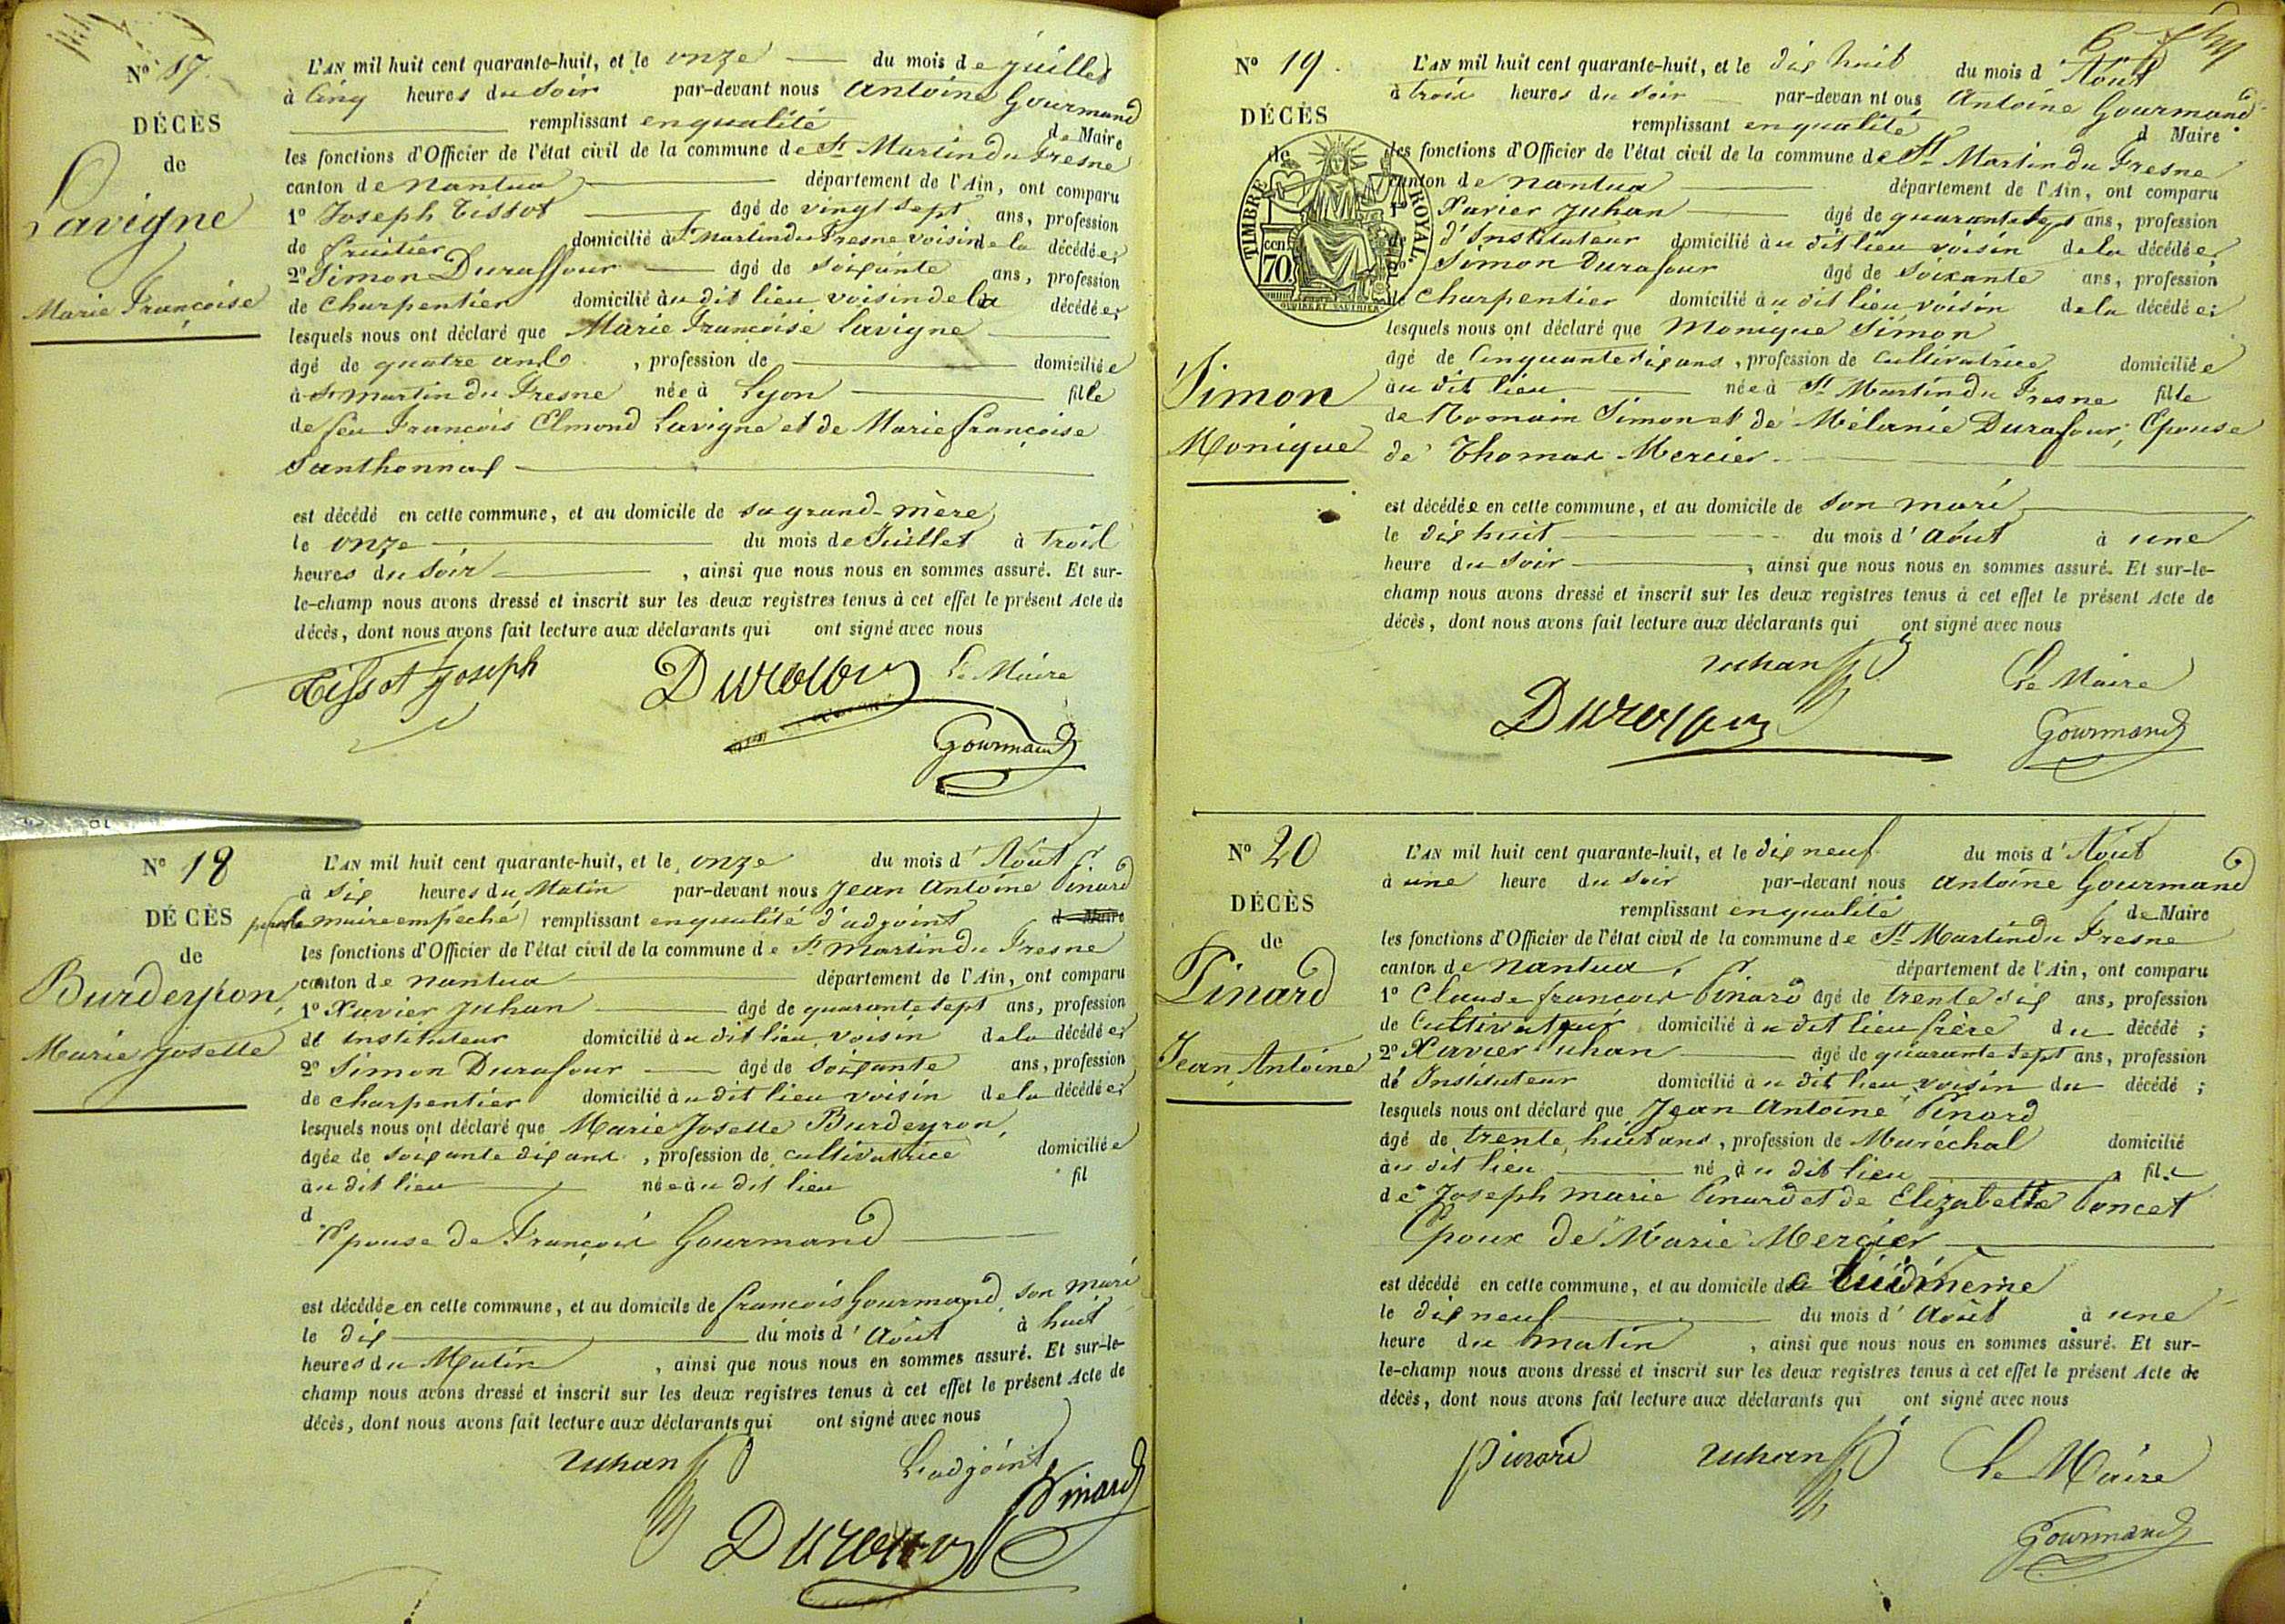 N° 17.
DÉCÈS
de
Lavigne
Marie Françoise
L'AN mil huit cent quarante-huit, et le onze du mois de juillet
à cinq heures du soir par-devant nous Antoine Gourmand
remplissant en qualité de Maire
les fonctions d'Officier de l'état civil de la commune de St Martin du Fresne
canton de nantua département de l'Ain, ont comparu
1° Joseph Tissot âgé de vingt sept ans, profession
de fruitier domicilié à St Martin du Fresne voisin de la décédée;
2° Simon Duraffour âgé de soixante ans, profession
de charpentier domicilié au dit lieu voisin de la décédée;
lesquels nous ont déclaré que Marie Françoise Lavigne
âgé de quatre ans, profession de domiciliée
à St martin du Fresne née à Lyon fille
de feu François Elmond Lavigne et de Marie françoise
Santhonnax
est décédé en cette commune, et au domicile de sa grand-mère
le onze du mois de Juillet à trois
heures du soir, ainsi que nous nous en sommes assuré. Et sur-
le-champ nous avons dressé et inscrit sur les deux registres tenus à cet effet le présent Acte de
décès, dont nous avons fait lecture aux déclarants qui ont signé avec nous
Tissot Joseph Le Maire
Gourmand
N° 18
DÉCÈS
de
Burdeyron,
Marie Josette
L'AN mil huit cent quarante-huit, et le onze du mois d'Août
à six heures du Matin par-devant nous Jean Antoine Pinard
(pour le maire empêché) remplissant en qualité d'adjoint d Maire
les fonctions d'Officier de l'état civil de la commune de St Martin du Fresne
canton de nantua département de l'Ain, ont comparu
1° Xavier Juhan âgé de quarante sept ans, profession
d' instituteur domicilié au dit lieu, voisin de la décédée;
2° Simon Durafour âgé de soixante ans, profession
de charpentier domicilié au dit lieu voisin de la décédée;
lesquels nous ont déclaré que Marie Josette Burdeyron,
âgée de soixante dix ans, profession de cultivatrice domiciliée
au dit lieu née au dit lieu fil
d
Epouse de François Gourmand
est décédée en cette commune, et au domicile de françois Gourmand, son mari
le dix du mois d'Août à huit
heures du Matin, ainsi que nous nous en sommes assuré. Et sur-le-
champ nous avons dressé et inscrit sur les deux registres tenus à cet effet le présent Acte de
décès, dont nous avons fait lecture aux déclarants qui ont signé avec nous
Juhan L'adjoint
Pinard
N° 19.
DÉCÈS
de
TIMBRE ROYAL.
cen.
70.
Simon
Monique
L'AN mil huit cent quarante-huit, et le dix huit du mois d Août
à trois heures du soir par-devan nt ous Antoine Gourmand
remplissant en qualité d Maire
les fonctions d'Officier de l'état civil de la commune de St Martin du Fresne
canton de nantua département de l'Ain, ont comparu
1° Xavier Juhan âgé de quarante sept ans, profession
d'Instituteur domicilié au dit lieu voisin de la décédée;
2° Simon Durafour âgé de soixante ans, profession
de Charpentier domicilié au dit lieu voisin de la décédée;
lesquels nous ont déclaré que Monique Simon
âgé de cinquante six ans, profession de cultivatrice domiciliée
au dit lieu née à St Martin du Fresne fille
de Romain Simon et de Mélanie Durafour, Epouse
de Thomas Mercier.
est décédée en cette commune, et au domicile de son mari
le dix huit du mois d'août à une
heure du soir, ainsi que nous nous en sommes assuré. Et sur-le-
champ nous avons dressé et inscrit sur les deux registres tenus à cet effet le présent Acte de
décès, dont nous avons fait lecture aux déclarants qui ont signé avec nous
Juhan Le Maire
Gourmand
N° 20
DÉCÈS
de
Pinard
Jean Antoine
L'AN mil huit cent quarante-huit, et le dix neuf du mois d'Août
à une heure du soir par-devant nous Antoine Gourmand
remplissant en qualité de Maire
les fonctions d'Officier de l'état civil de la commune de St Martin du Fresne
canton de Nantua, département de l'Ain, ont comparu
1° Claude françois Pinard âgé de trente six ans, profession
de Cultivateur domicilié au dit lieu frère du décédé;
2° Xavier Juhan âgé de quarante sept ans, profession
d' Instituteur domicilié au dit lieu voisin du décédé;
lesquels nous ont déclaré que Jean Antoine Pinard
âgé de trente huit ans, profession de Maréchal domicilié
au dit lieu né au dit lieu fils
de Joseph marie Pinard et de Elizabette Poncet
Epoux de Marie Mercier
est décédé en cette commune, et au domicile de lui même
le dix neuf du mois d'Août à une
heure du matin, ainsi que nous nous en sommes assuré. Et sur-
le-champ nous avons dressé et inscrit sur les deux registres tenus à cet effet le présent Acte de
décès, dont nous avons fait lecture aux déclarants qui ont signé avec nous
Pinard Juhan Le Maire
Gourmand